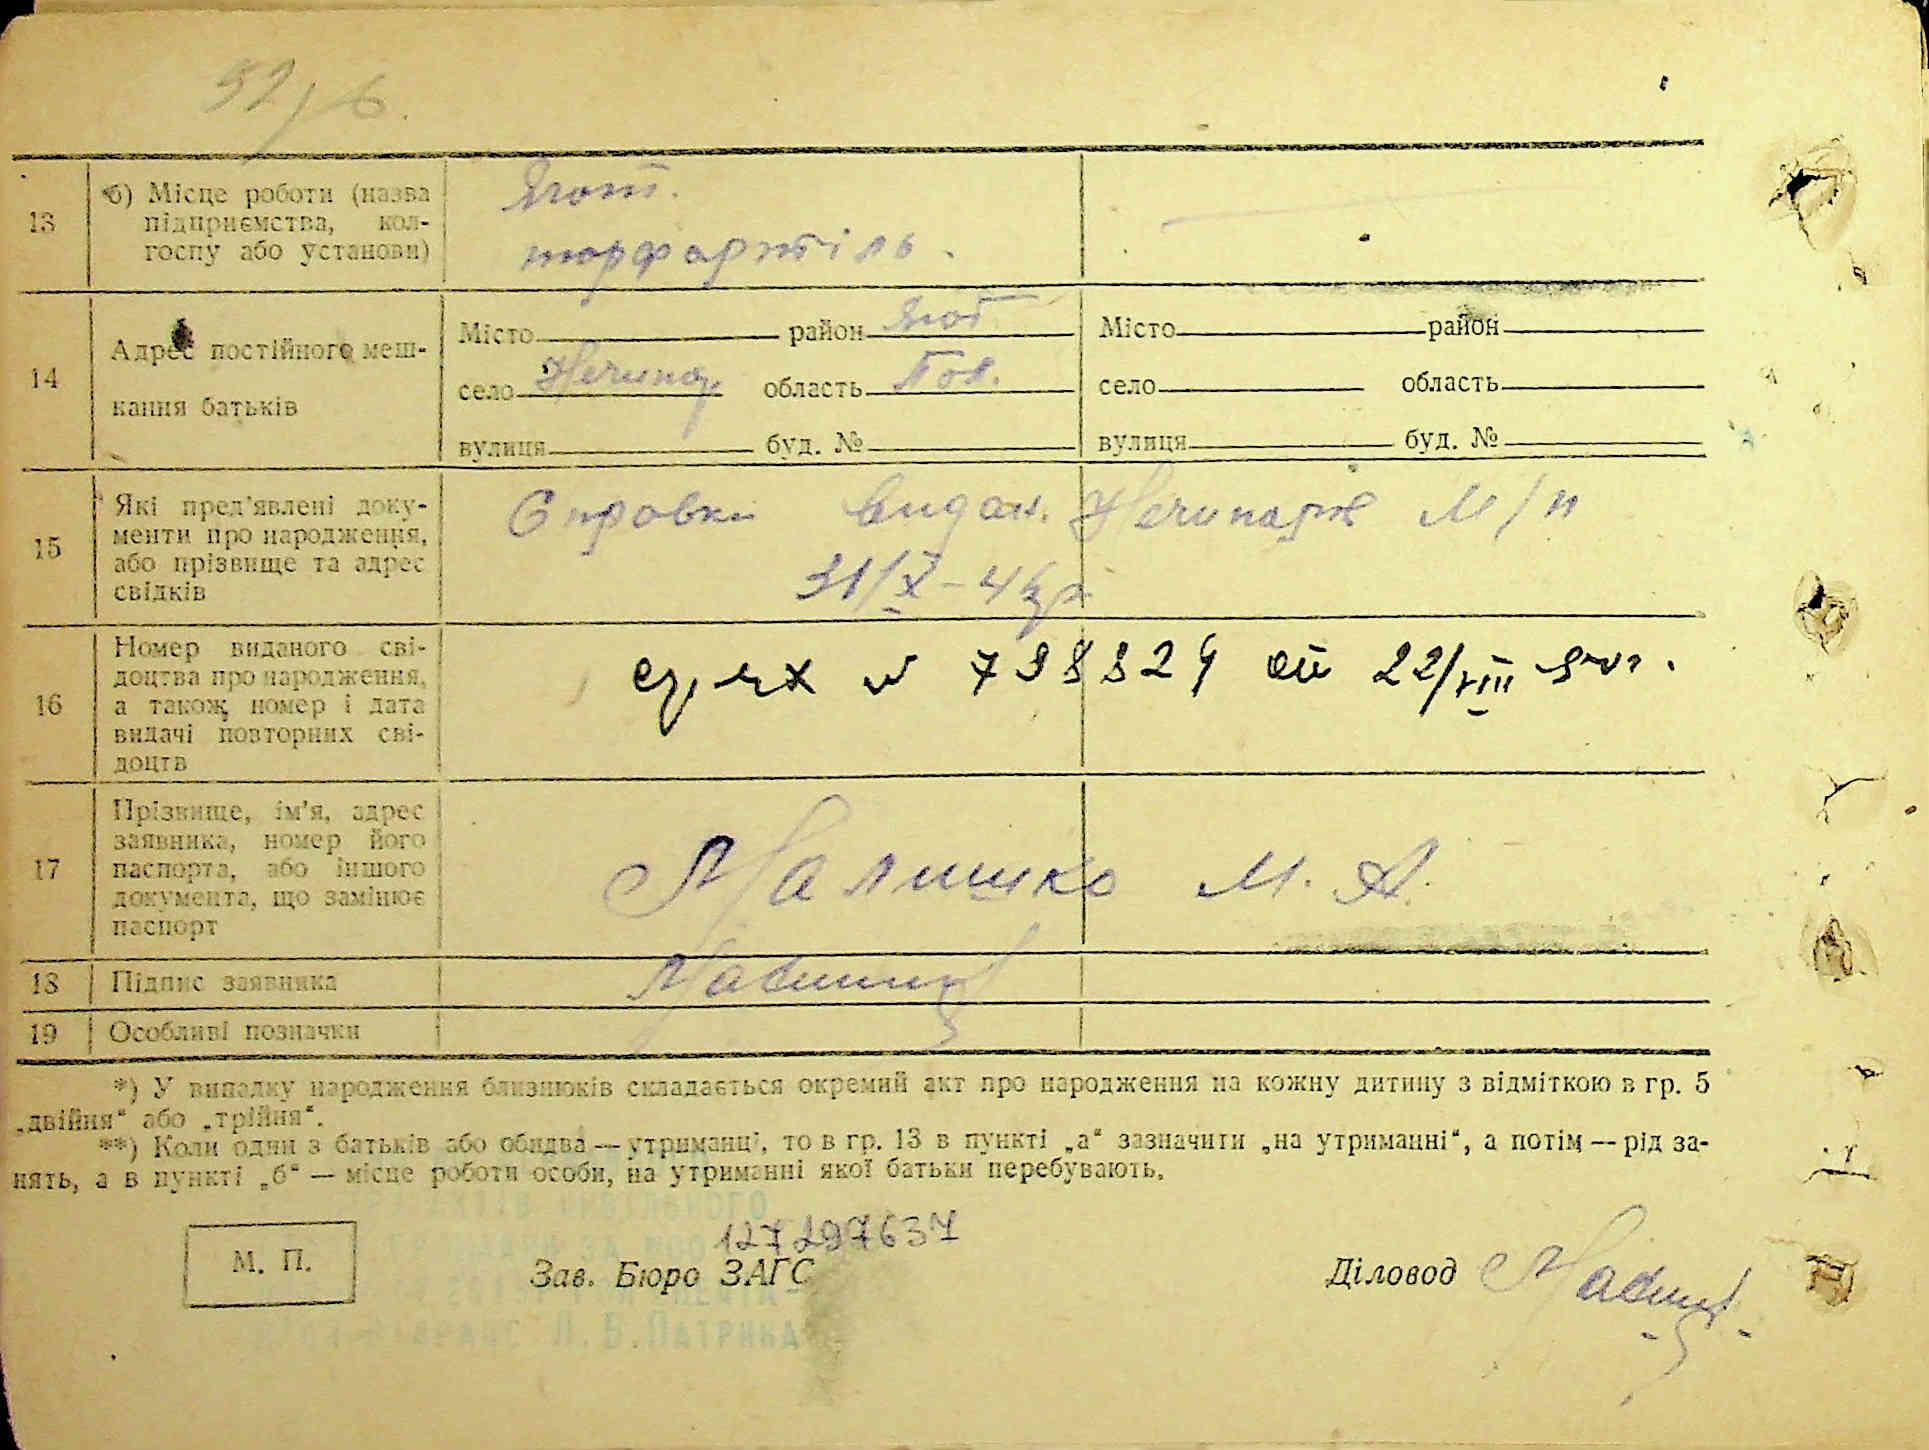 13
б) Місце роботи (назва
підприємства, кол-
госпу або установи)
Ягот.
торфартіль.
14
Адрес постійного меш-
кання батьків
Місто район Ягот
село область Пол.
вулиця буд. №
Місто район
село область
вулиця буд. №
15
Які пред'явлені доку-
менти про народження,
або прізвище та адрес
свідків
Справки видан. М/п
31/X-
16
Номер виданого сві-
доцтва про народження,
а також номер і дата
видачі повторних сві-
доцтв
22/VIII
17
Прізвище, ім'я, адрес
заявника, номер його
паспорта, або іншого
документа, що замінює
паспорт
Малишко М. А.
18
Підпис заявника
19
Особливі позначки
*) У випадку народження близнюків складається окремий акт про народження на кожну дитину з відміткою в гр. 5
„двійня“ або „трійня“.
**) Коли один з батьків або обидва — утриманці, то в гр. 13 в пункті „а“ зазначити „на утриманні“, а потім — рід за-
нять, а в пункті „б“ — місце роботи особи, на утриманні якої батьки перебувають.
М. П.
Зав. Бюро ЗАГС
Діловод